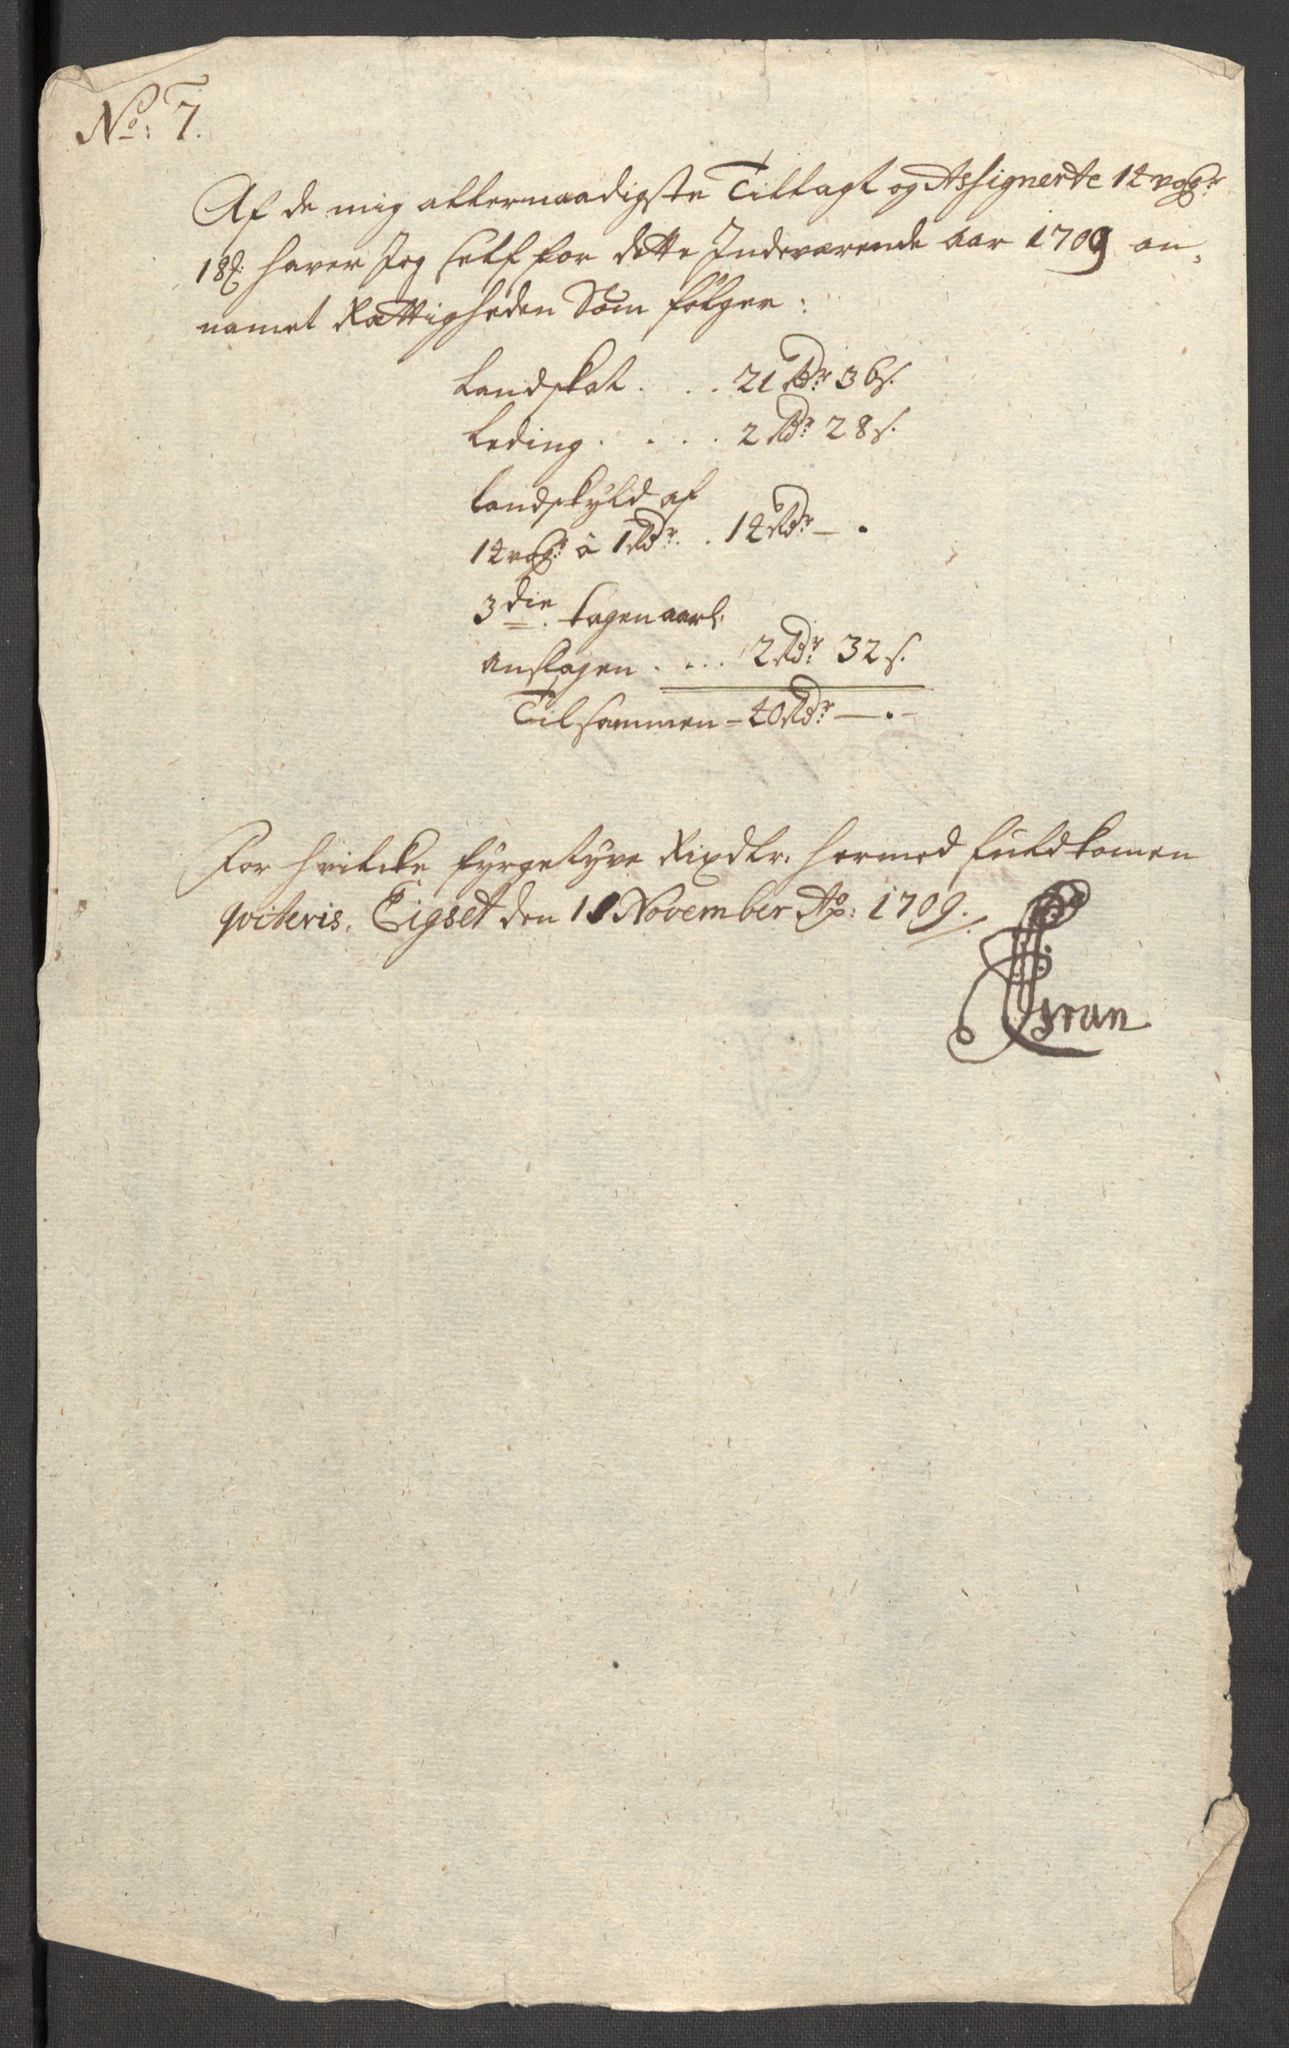 No: 7.
Af de mig allernaadigste Tillagt og Assignerte 14 vogr
18 ℔ haver Jeg Self for dette Indeværende Aar 1709 an-
namet Rættigheden Som følger:
Landskat . . . 21 Rdr 36 s.
Leding . . . . 2 Rdr 28 s.
Landskyld af
14 vogr â 1 Rdr. . 14 Rdr — .
3die tagen aarl.
anslagen . . . . 2 Rdr 32 s.
Tilsammen — 40 Rdr — . —
For hvilcke fyrgetyve Rixdlr. hermed fuldkomen
qviteris. Eigset den 11 November Ao: 1709.